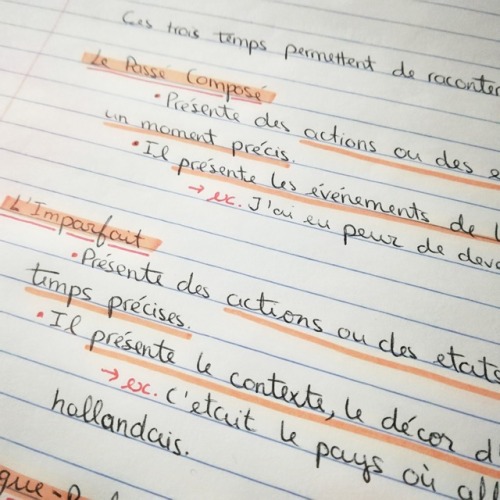 Ces trois temps permettent de raconter
Le Passé Composé
• Présente des actions ou des
un moment précis.
• Il présente les événements de
→ ex. J'ai eu peur de
L'Imparfait
• Présente des actions ou des etats
temps précises.
• Il présente le contexte, le décor
→ ex. C'était le pays où
hollandais.